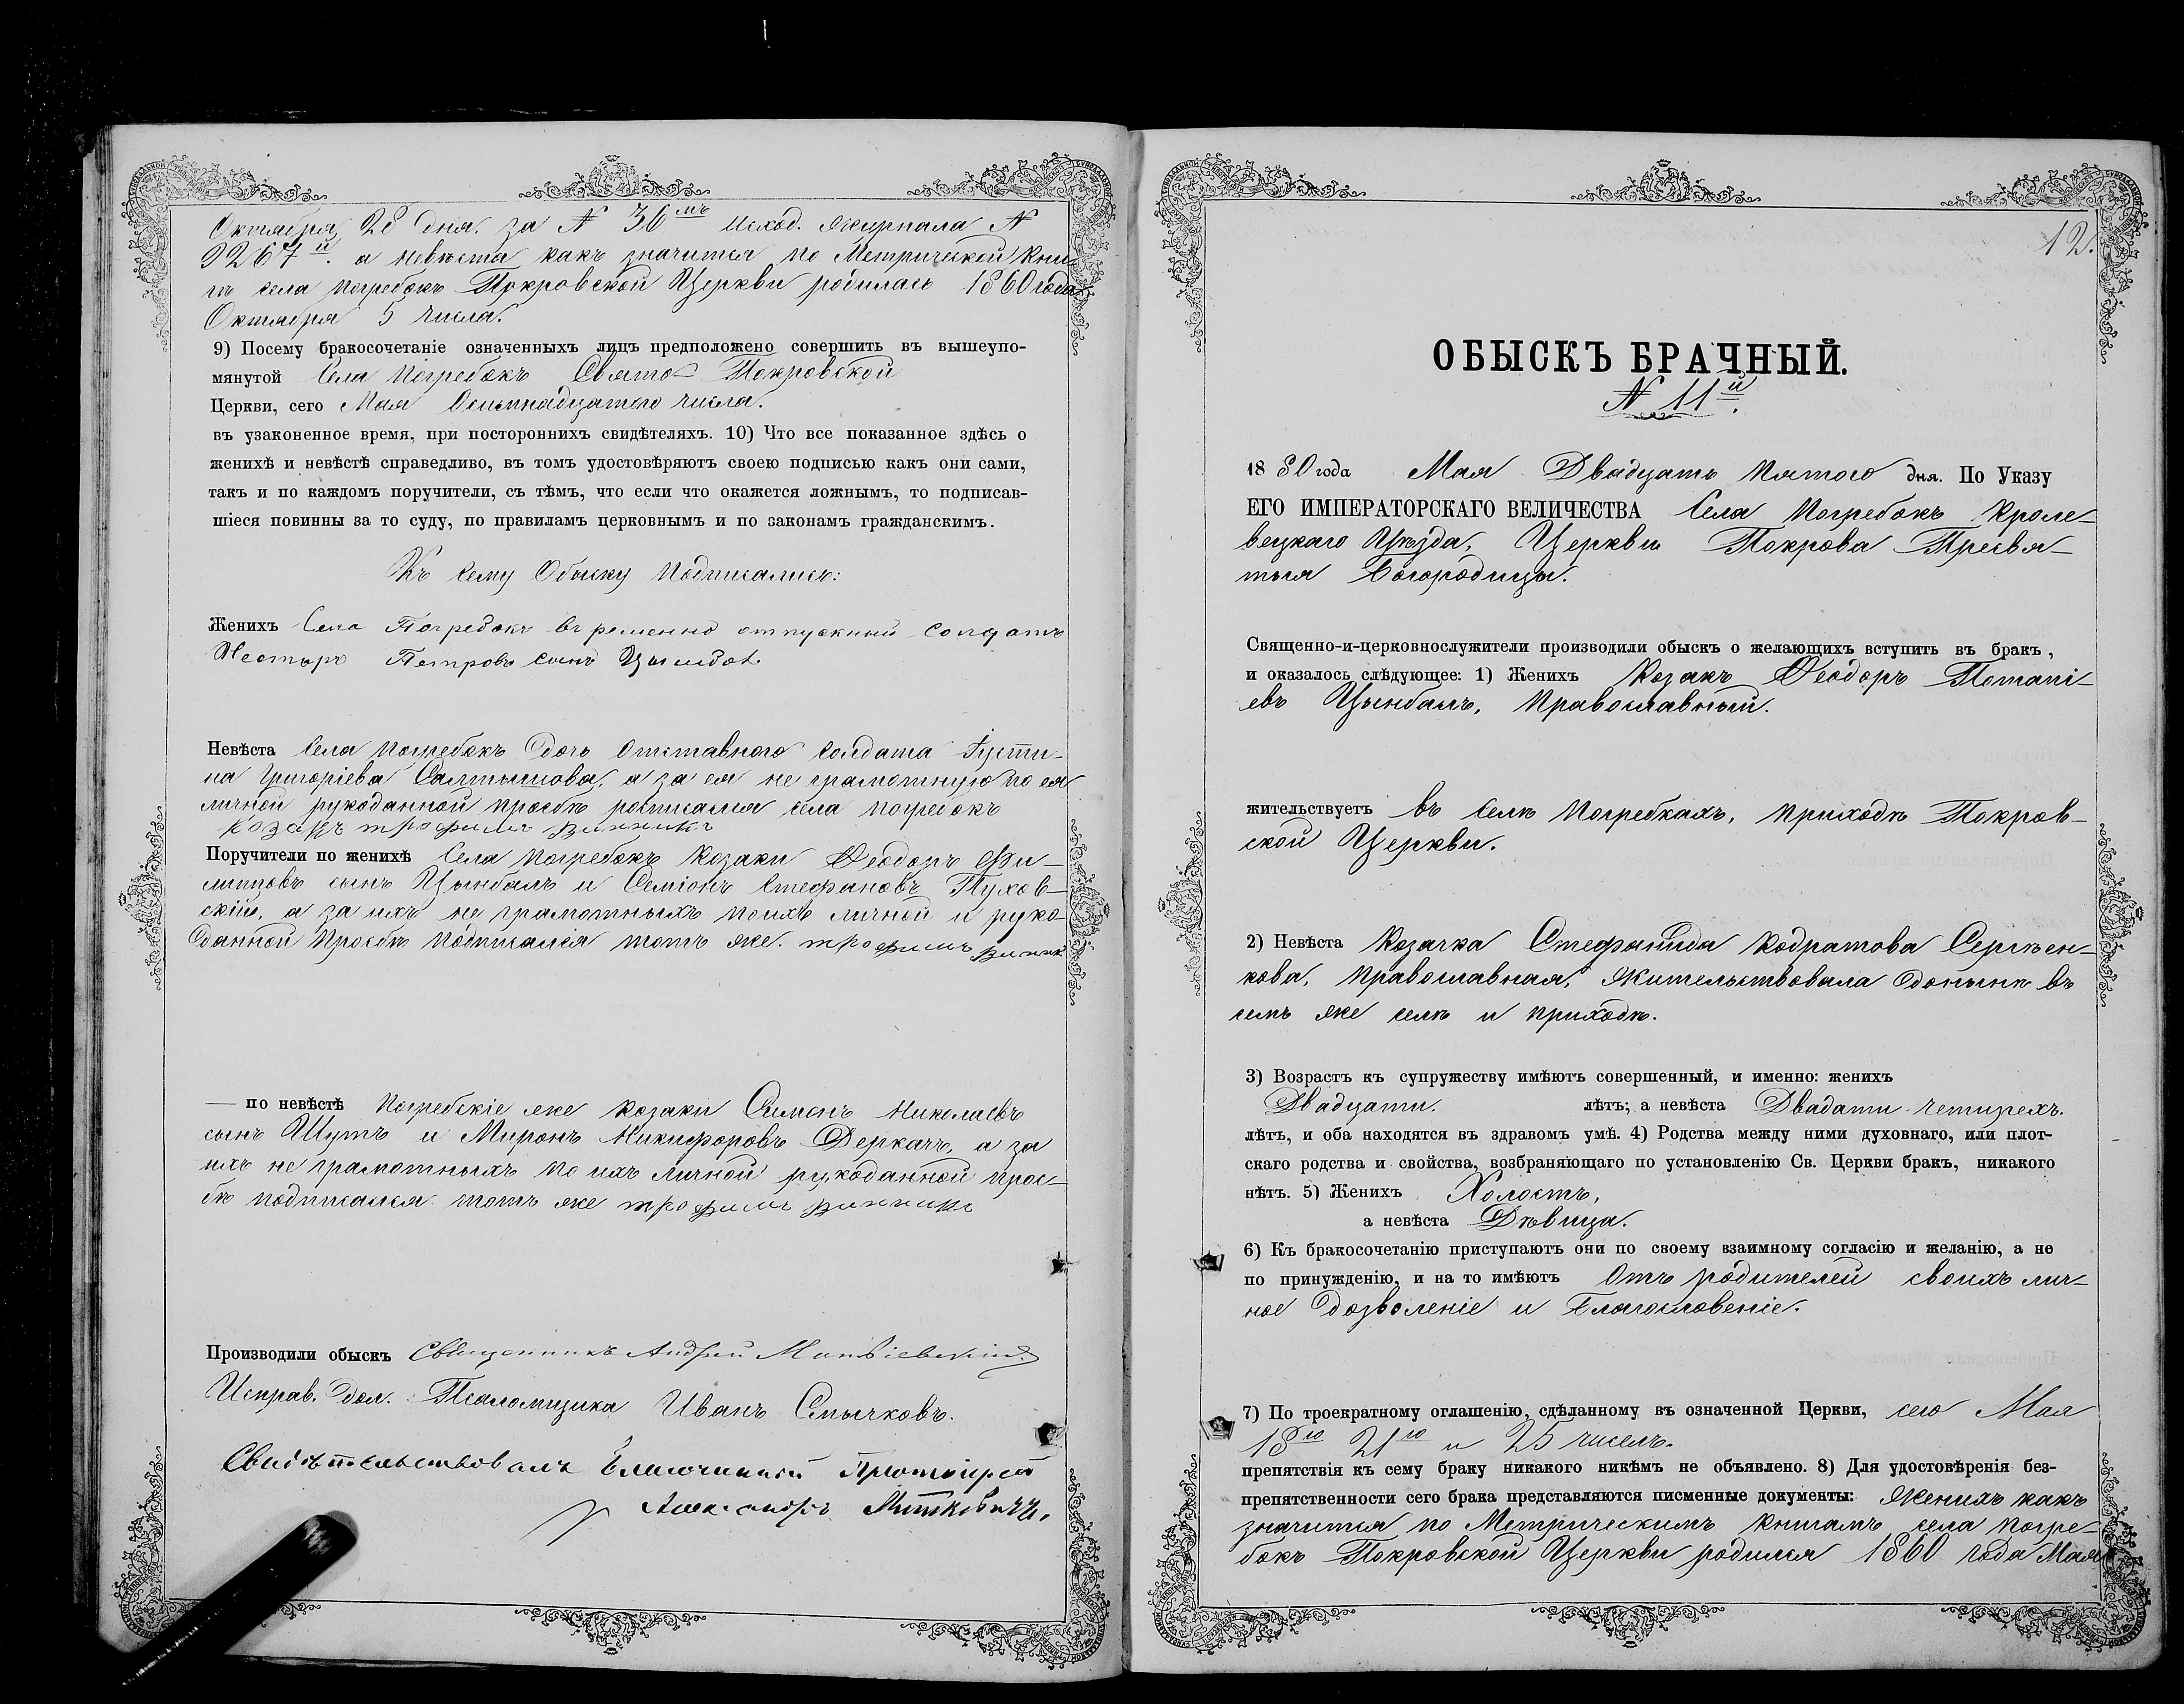 Октября 28 дня. за № 36мъ исход. Журнала №
9267й. а невѣста какъ значится по Метрической кни-
гѣ села Погребокъ Покровской Церкви родилась 1860 года
Октября 5 числа.
9) Посему бракосочетаніе означенныхъ лицъ предположено совершить въ вышеупо-
мянутой Села Погребокъ Свято-Покровской
Церкви, сего Мая Осьмнадцатого числа.
въ узаконенное время, при постороннихъ свидѣтеляхъ. 10) Что все показанное здѣсь о
женихѣ и невѣстѣ справедливо, въ томъ удостовѣряютъ своею подписью какъ они сами,
такъ и по каждомъ поручители, съ тѣмъ, что если что окажется ложнымъ, то подписав-
шіеся повинны за то суду, по правиламъ церковнымъ и по законамъ гражданскимъ.
Къ сему Обыску подписались:
Женихъ Села Погребокъ временно отпускний солдатъ
Нестыръ Петровъ сынъ
Невѣста Села Погребокъ дочь отставного солдата Густи-
на Григоріева Салтышова, а за ея не грамотную по ея
личной рукоданной просьбѣ росписался села Погребокъ
козакъ трофимъ винникъ
Поручители по женихѣ Села Погребокъ Козаки Ѳеодоръ Фи-
липповъ сынъ Цынбалъ и Семіонъ Стефановъ Пухов-
скій, а за ихъ не грамотныхъ по ихъ личной и руко
данной просьбѣ подписался тотъ же. трофимъ винник
— по невѣстѣ Погребскіе же козаки Симонъ Николаевъ
сынъ Шутъ и Миронъ Никифоровъ Деркачъ, а за
ихъ не грамотныхъ по ихъ личной рукоданной прось-
бѣ подписался тотъ же трофимъ винникъ
Производили обыскъ Священникъ Андрей
Исправ. дол. Псаломщика Иванъ Смычковъ.
Свидѣтельствовалъ Благочинный Протоіерей
Александръ
12.
ОБЫСКЪ БРАЧНЫЙ.
№ 11й.
1880 года Мая Двадцать пятого дня. По Указу
ЕГО ИМПЕРАТОРСКАГО ВЕЛИЧЕСТВА Села Погребокъ Кроле-
вецкаго Уѣзда, Церкви Покрова Пресвя-
тыя Богородицы.
Священно-и-церковнослужители производили обыскъ о желающихъ вступить въ бракъ,
и оказалось слѣдующее: 1) Женихъ Козакъ Ѳеодоръ Потапі-
евъ Цынбалъ, Православный.
жительствуетъ въ селѣ Погребкахъ, приходѣ Покров-
ской Церкви.
2) Невѣста Козачка Стефанида Кодратова Сергѣен-
кова, Православная, жительствовала доньінѣ въ
семъ же селѣ и приходѣ.
3) Возрастъ къ супружеству имѣютъ совершенный, и именно: женихъ
Двадцати. лѣтъ; а невѣста Двадати четирехъ.
лѣтъ, и оба находятся въ здравомъ умѣ. 4) Родства между ними духовнаго, или плот-
скаго родства и свойства, возбраняющаго по установленію Св. Церкви бракъ, никакого
нѣтъ. 5) Женихъ Холостъ,
а невѣста Дѣвица.
6) Къ бракосочетанію приступаютъ они по своему взаимному согласію и желанію, а не
по принужденію, и на то имѣютъ Отъ родителей своихъ лич-
ное дозволеніе и Благословеніе.
7) По троекратному оглашенію, сдѣланному въ означенной Церкви, сего Мая
18го 21го и 25 чиселъ.
препятствія къ сему браку никакого никѣмъ не объявлено. 8) Для удостовѣренія без-
препятственности сего брака представляются писменные документы: Женихъ какъ
значится по Метрическимъ книгамъ села Погре-
бокъ Покровской Церкви родился 1860 года Мая